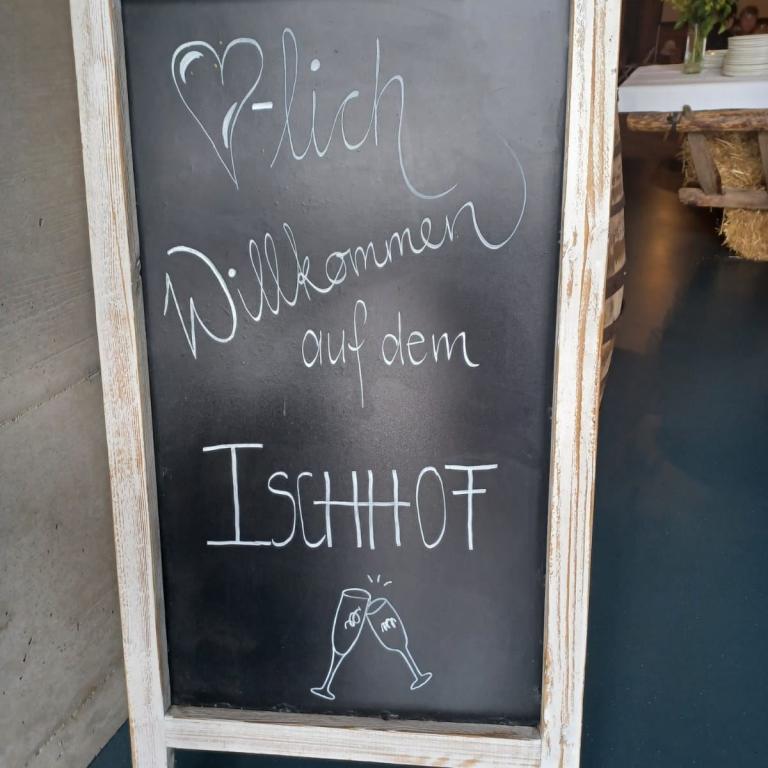 ♡-lich
Willkommen
auf dem
ISCHHOF